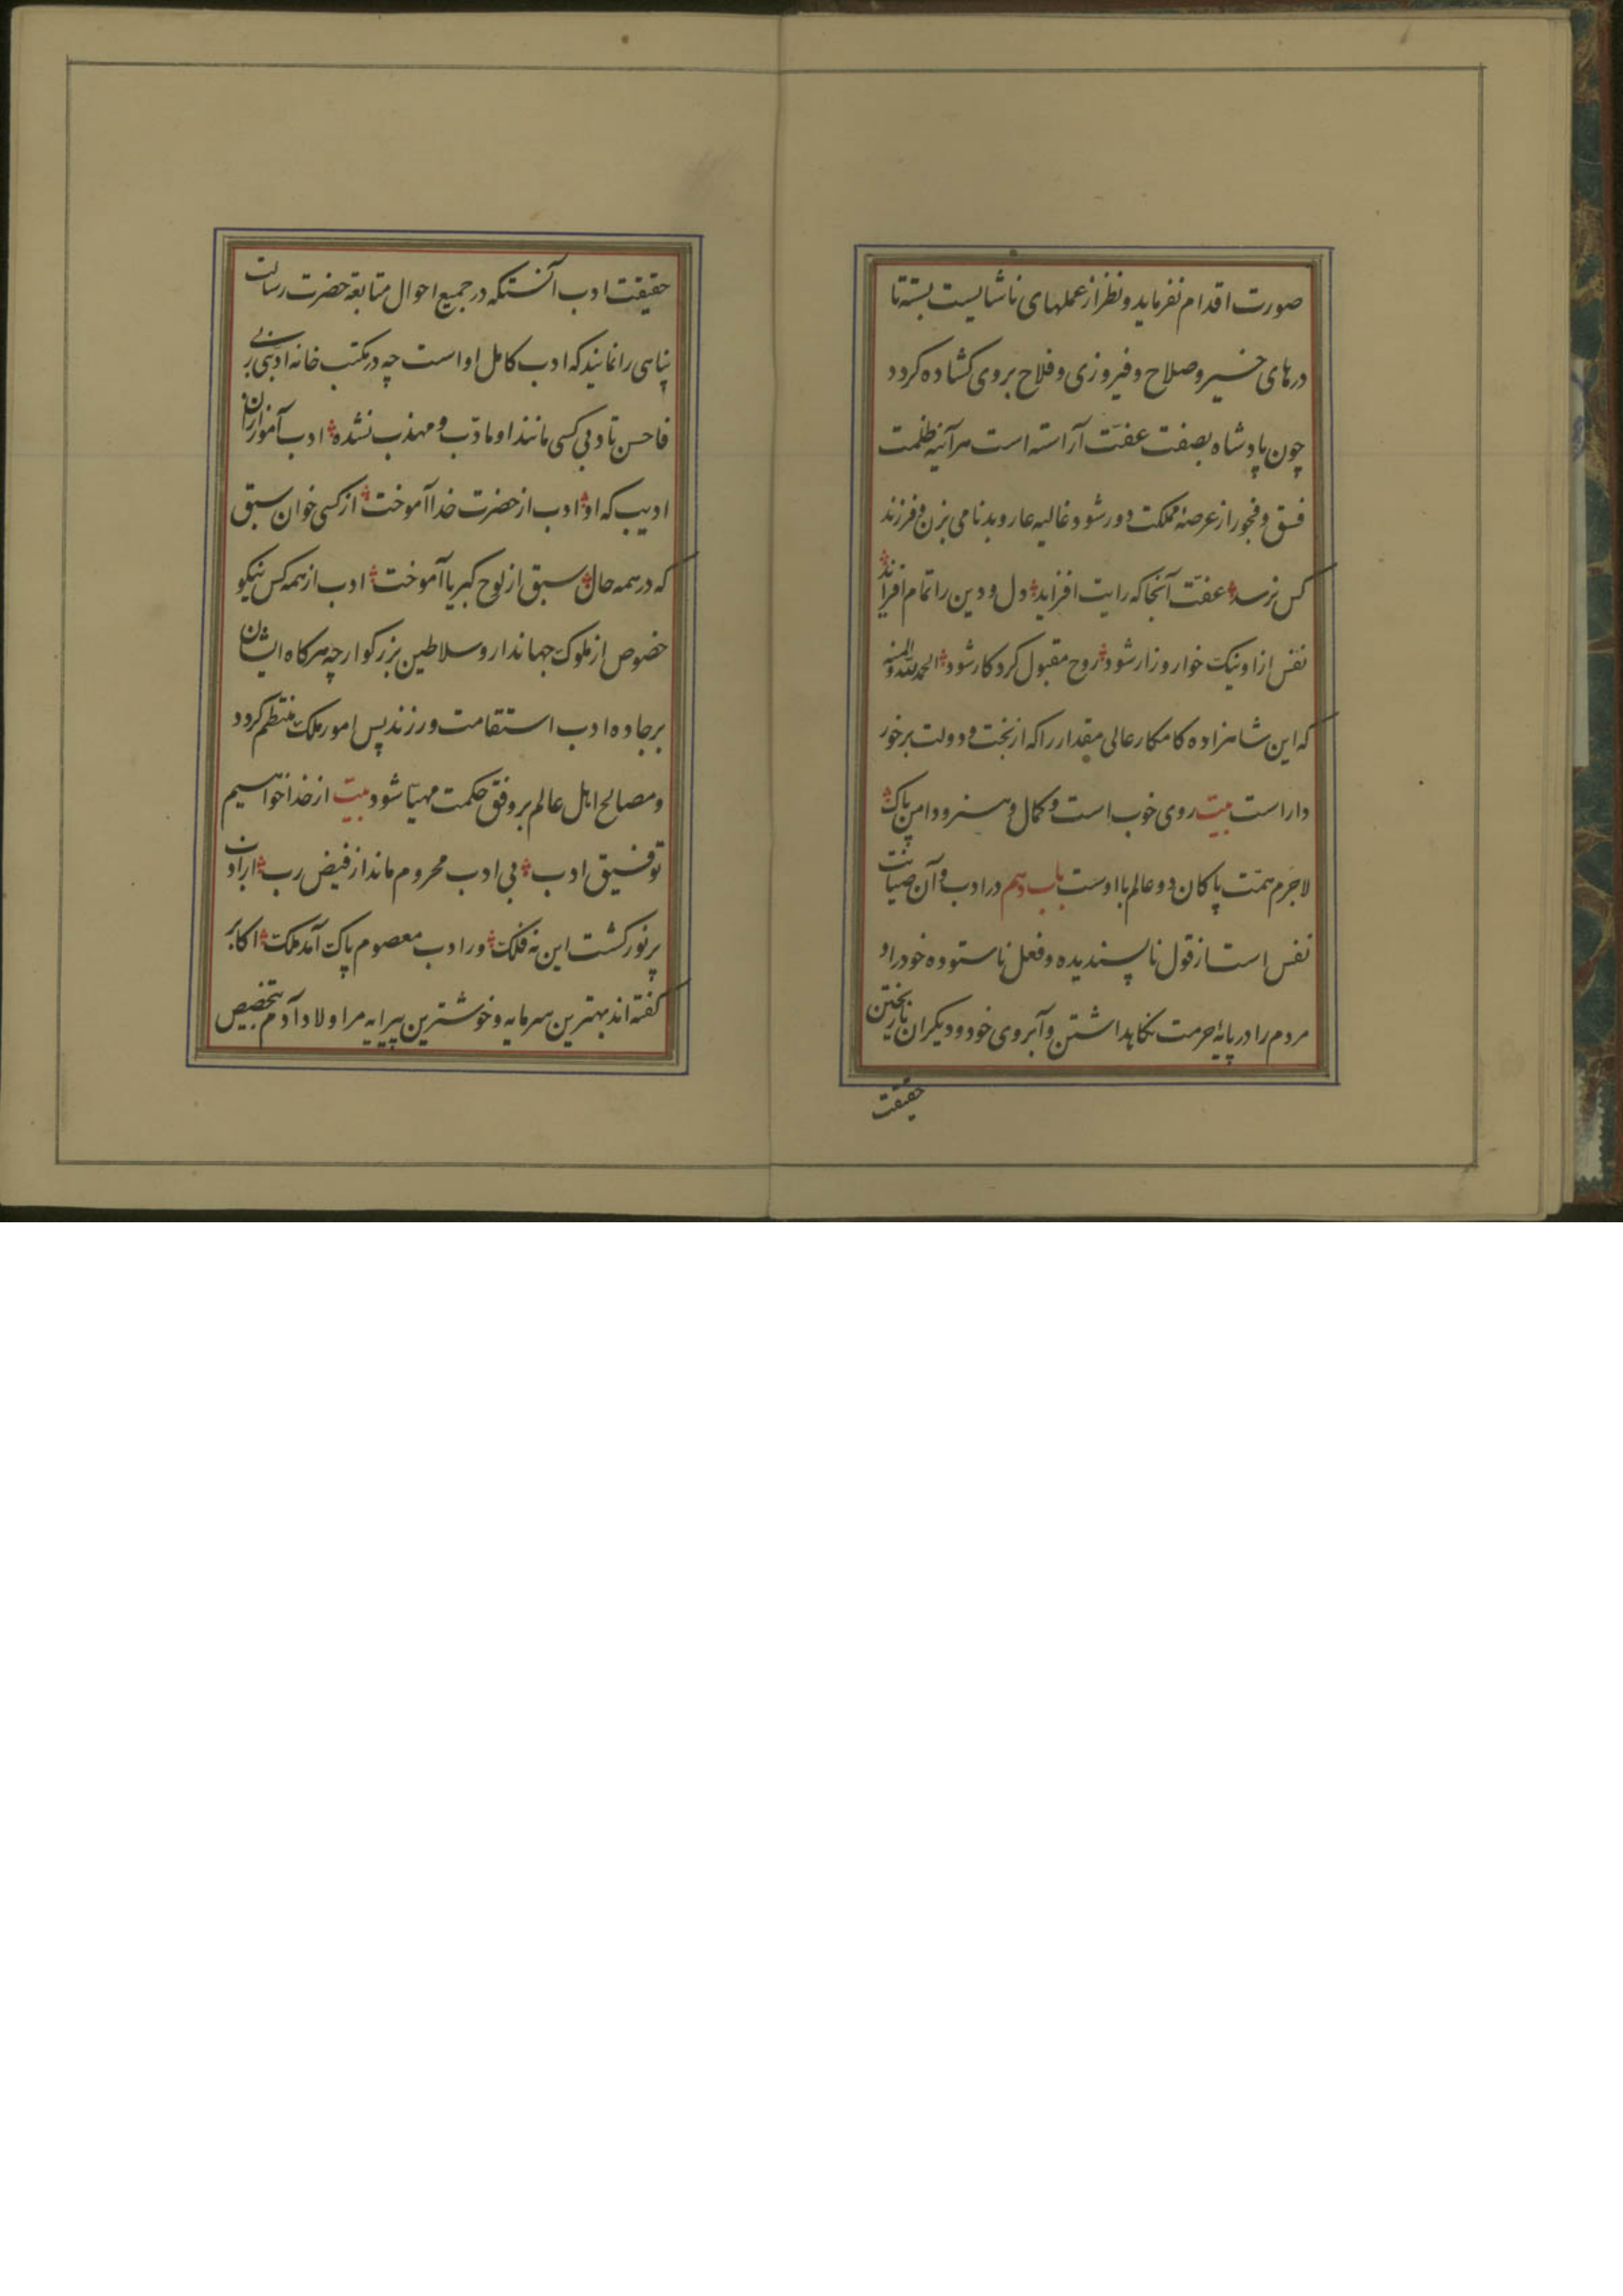 صورت اقدام نفرماید و نظر از عملهای ناشایست بسته تا
درهای خیر و صلاح و فیروزی و فلاح بروی کشاده کردد
چون پادشاه بصفت عفّت آراسته است هرآئینه ظلمت
فسق و فجور از عرصهٔ مملکت دور شود و غالیه عار و بدنامی بزن و فرزند
کس نرسد عفّت آنجا که رایت افزاید دل و دین را تمام افزاید
نفس از او نیک خوار و زار شود روح مقبول کردکار شود الحمدلله و المنه
که این شاهزاده کامکار عالی مقدار را که از بخت و دولت برخور
دار است بیت روی خوب است و کمال و هنر و دامن پاک
لاجرم همّت پاکان دو عالم با اوست باب دهم در ادب و آن صیانت
نفس است از قول ناپسندیده و فعل ناستوده خود را و
مردم را در پایهٔ حرمت نکاهداشتن و آبروی خود و دیکران ناریختن
حقیقت
حقیقت ادب آنستکه در جمیع احوال متابعة حضرت رسالت
پناهی را نمایند که ادب کامل او است چه در مکتب خانه ادبنی ربی
فاحسن تادیبی کسی مانند او مادّب و مهذب نشده ادب آموز ازان
ادیب که او ادب از حضرت خدا آموخت از کسی خوان سبق
که در همه حال سبق از لوح کبریا آموخت ادب از همه کس نیکو
خصوص از ملوک جهاندار و سلاطین بزرکوار چه هرکاه ایشان
برجاده ادب استقامت ورزند پس امور ملک منتظم کردد
و مصالح اهل عالم بر وفق حکمت مهیّا شود بیت از خدا خواهیم
توفیق ادب بی ادب محروم ماند از فیض رب از ادب
پرنور کشت این نه فلک ور ادب معصوم پاک آمد ملک اکابر
کفته اند بهترین سرمایه و خوشترین پیرایه مر اولاد آدم بتخصیص